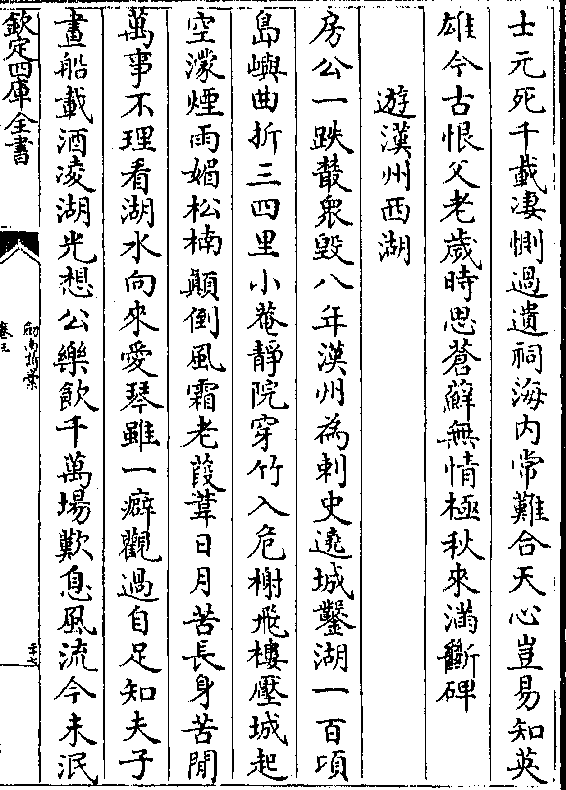 士元死千載凄惻過遺祠海内常難合天心豈易知英
雄今古恨父老歲時思蒼蘚無情極秋來滿斷碑
遊漢州西湖
房公一跌叢衆毀八年漢州為刺史遶城鑿湖一百頃
島嶼曲折三四里小菴靜院穿竹入危榭飛樓壓城起
空濛煙雨媚松楠顛倒風霜老葭葦日月苦長身苦閒
萬事不理看湖水向來愛琴雖一癖觀過自足知夫子
畫船載酒凌湖光想公樂飲千萬場歎息風流今未泯
欽定四庫全書
劍南詩稾
卷三